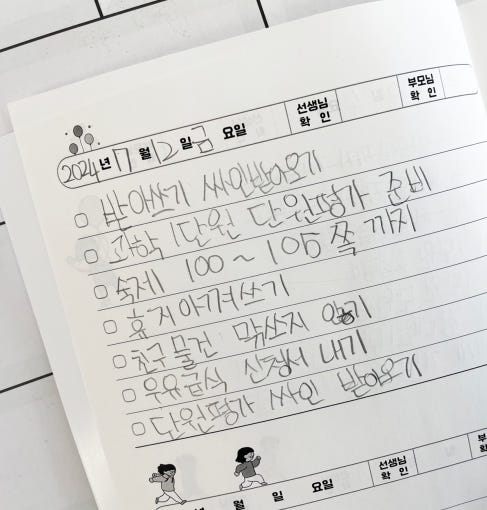 2024년 7월 12일 금요일 선생님 확인 부모님 확인
받아쓰기 싸인받아오기
과학 1단원 단원평가 준비
숙제 100~105쪽 까지
휴지아껴쓰기
친구물건 막쓰지 않기
우유급식 신청서 내기
단원평가 싸인 받아오기
년 월 일 요일 선생님 확인 부